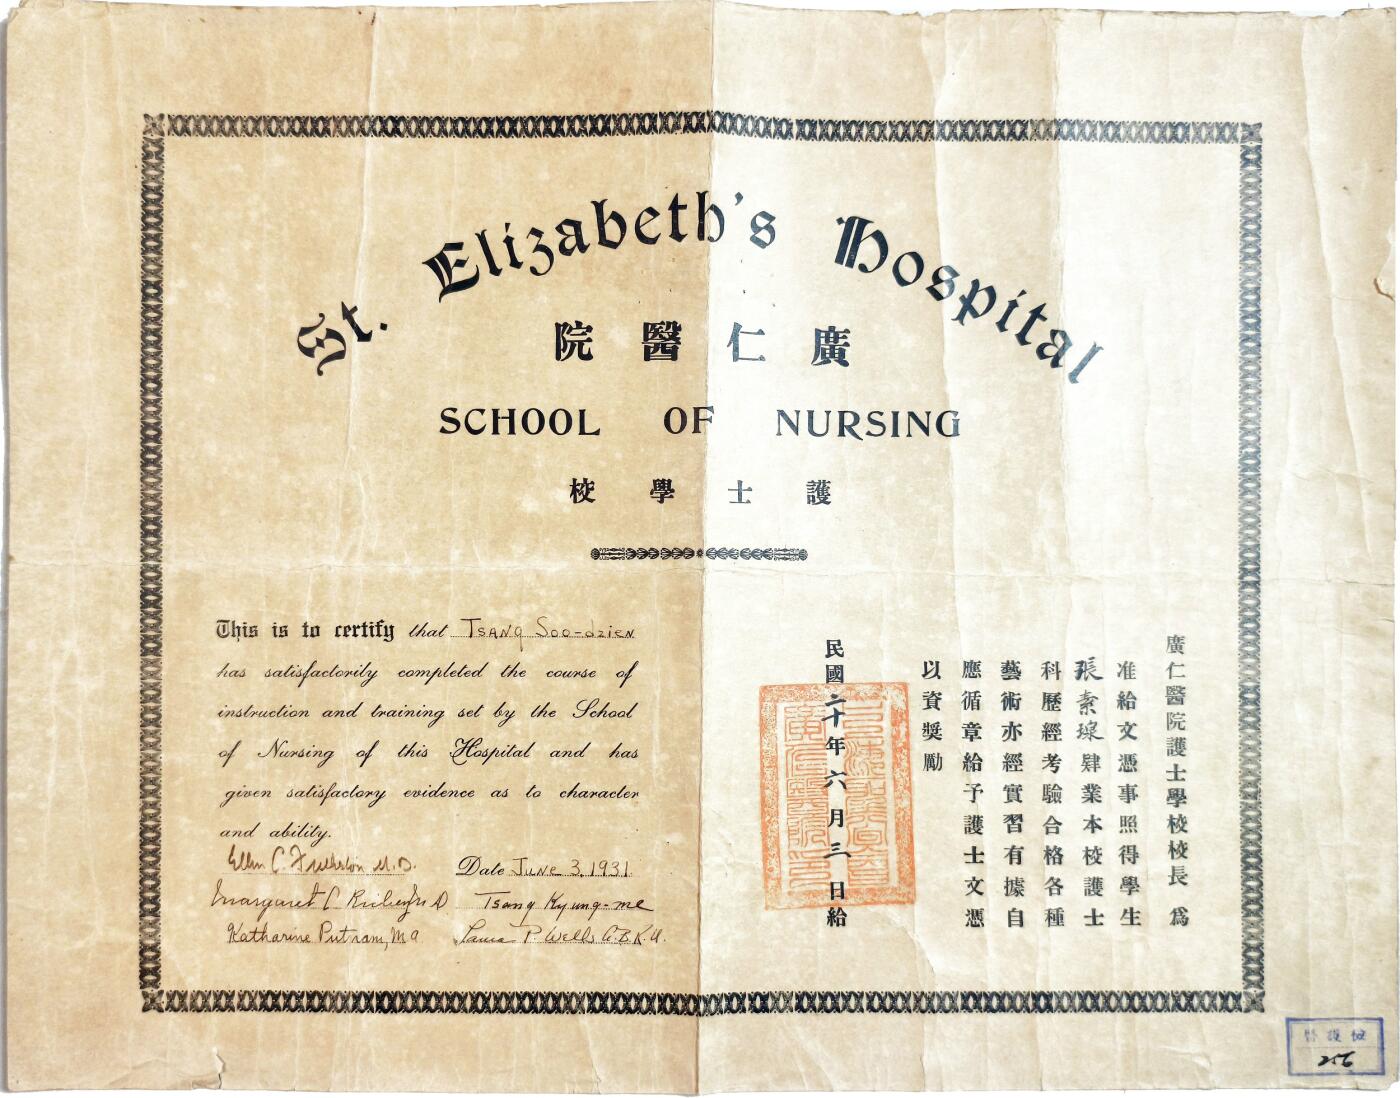 St. Elizabeth's Hospital
廣仁醫院
SCHOOL OF NURSING
護士學校
This is to certify that Tsang Soo-dzien
has satisfactorily completed the course of
instruction and training set by the School
of Nursing of this Hospital and has
given satisfactory evidence as to character
and ability.
Ellen C. Fullerton M.D.
Date June 3, 1931.
Margaret C. Richey M D
Tsang Kyung-me
Katharine Putnam, M A
Laura P. Wells
廣仁醫院護士學校校長 爲
准給文憑事照得學生
張素 肄業本校護士
科歷經考驗合格各種
藝術亦經實習有據自
應循章給予護士文憑
以資奬勵
民國二十年六月三日給
廣仁醫院
檢護
256